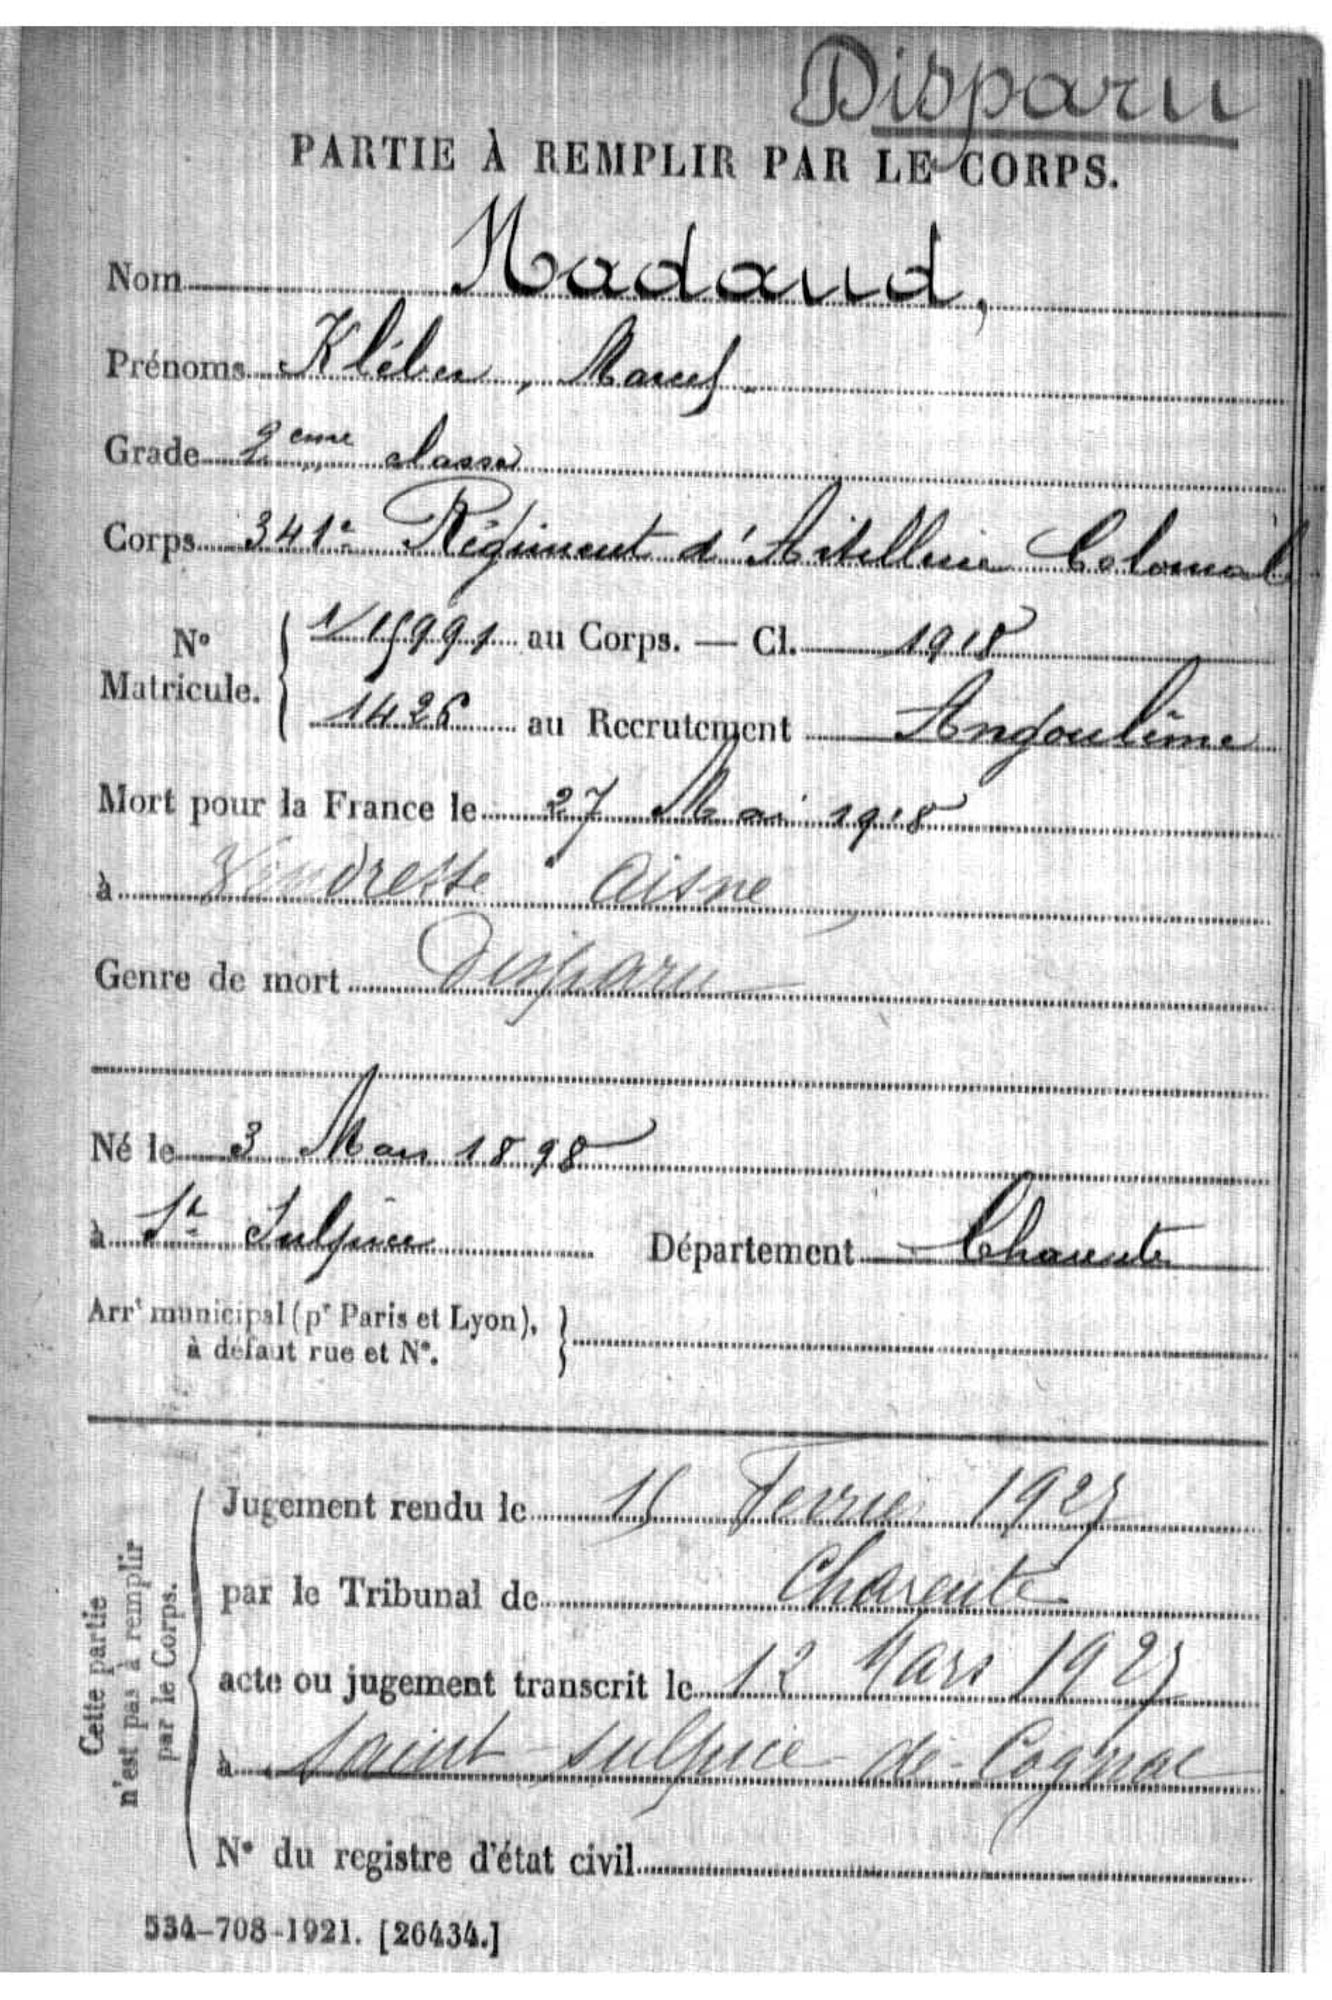 Disparu
PARTIE À REMPLIR PAR LE CORPS.
Nom Nadaud,
Prénoms Kléber, Marcel
Grade 2ème classe
Corps 341e Régiment d'Artillerie Colonial
No Matricule. 1/15991 au Corps. — Cl. 1918
1426 au Recrutement Angoulême
Mort pour la France le 27 Mai 1918
à Vendresse Aisne
Genre de mort Disparu
Né le 3 Mars 1898
à St Sulpice Département Charente
Arrt municipal (pr Paris et Lyon),
à défaut rue et No.
Cette partie
n'est pas à remplir
par le Corps.
Jugement rendu le 15 Fevrier 1925
par le Tribunal de Charente
acte ou jugement transcrit le 12 Mars 1925
à Saint-Sulpice-de-Cognac
No du registre d'état civil
534-708-1921. [26434.]